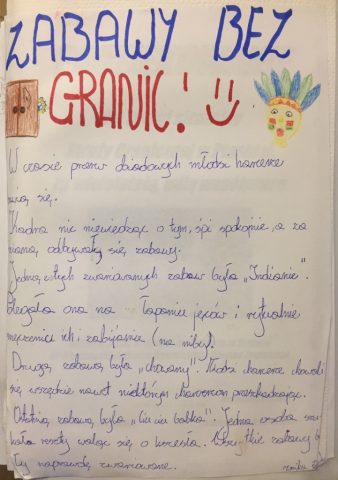 ZABAWY BEZ
GRANIC! :)
W czasie przerw obiadowych młodzi harcerze
się.
Kadra nic niewiedząc o tym, śpi spokojnie, a za
ścianą odbywały się zabawy.
Jedną z tych zwariowanych zabaw była „Indianie".
Polegała ona na łapaniu jeńców i rytualnie
męczeniu ich i zabijaniu (na niby).
Drugą zabawą była „chowany". Młodzi harcerze chowali
się wszędzie nawet niektórym harcerzom przeszkadzając.
Ostatnią zabawą była „ciuciu babka". Jedna osoba szu-
kała reszty waląc się o krzesła. Wszystkie zabawy b
ły naprawdę zwariowane.